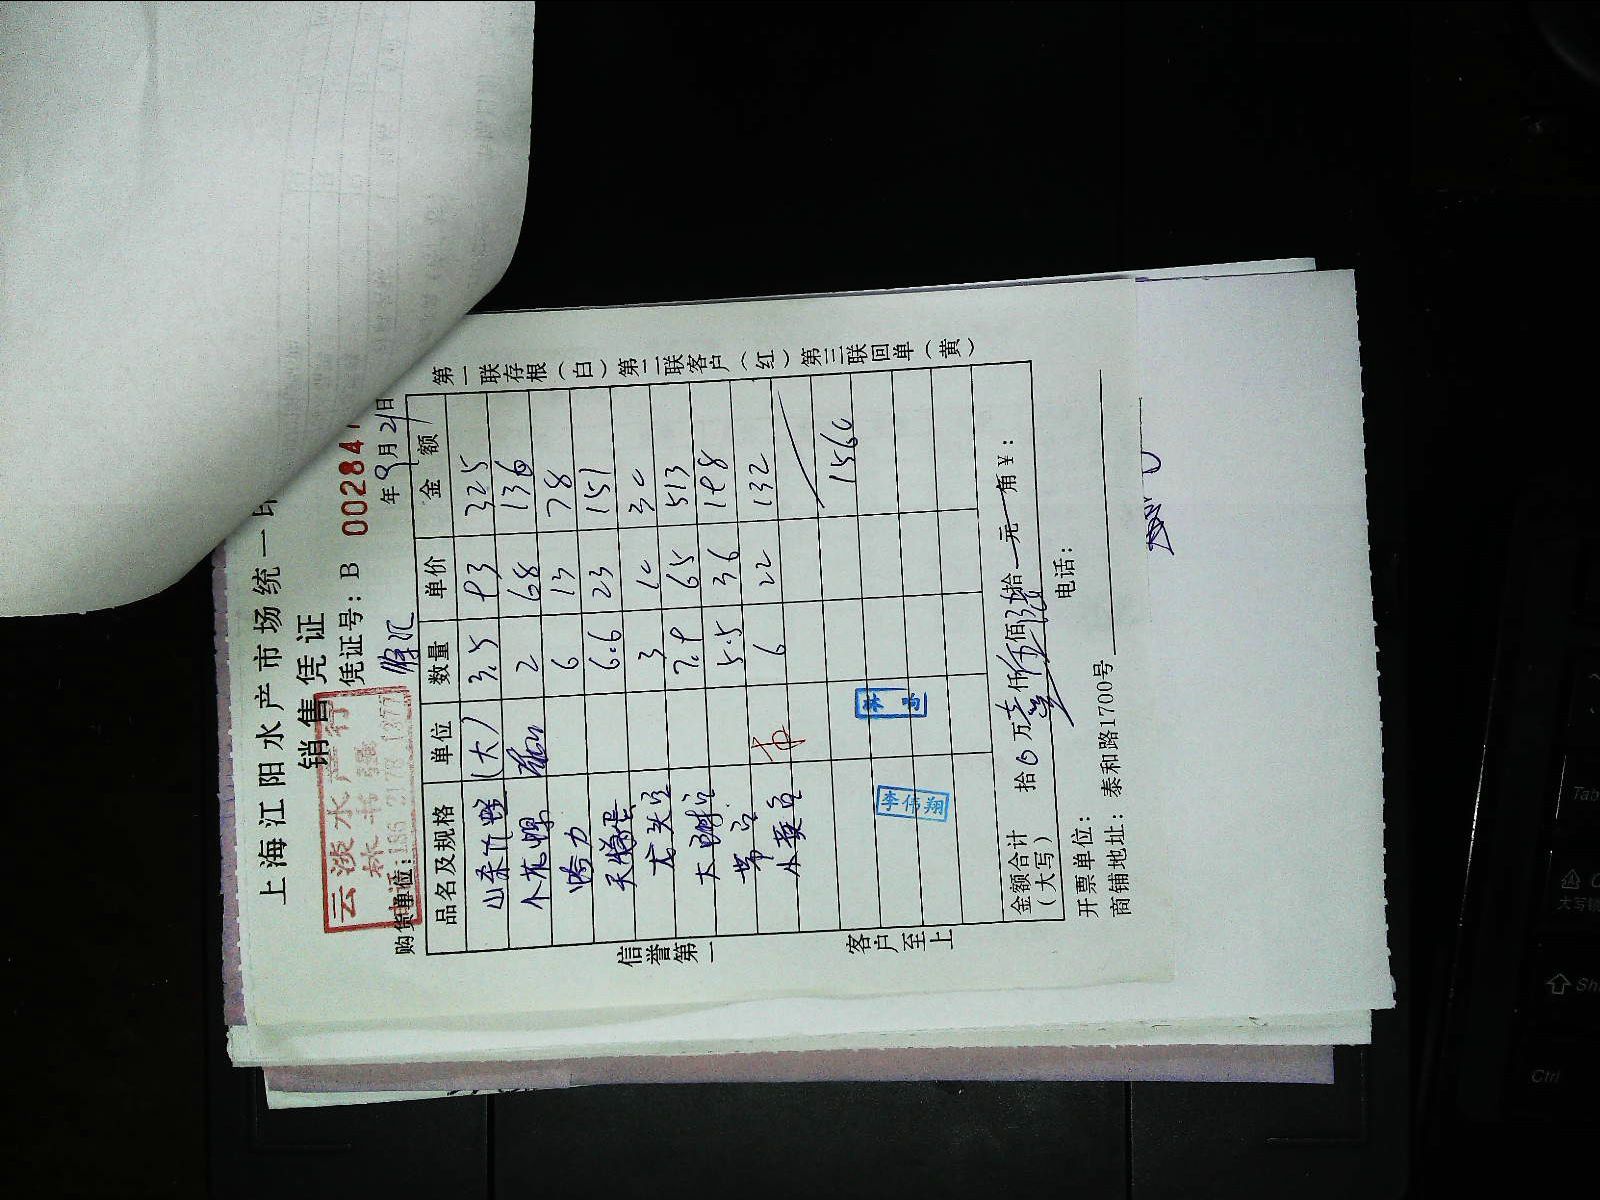 上海江阳水产市场统一
销售凭证
凭证号：B 00284
云淡水产行
林书强
电话:186 2178 1377
购货单位： 臻汇
年 9 月 21 日
品名及规格 单位 数量 单价 金额
(大) 3.5 93 325
小花螺 2 68 136
蛏力 6 13 78
6.6 23 151
龙头豆 3 10 30
7.9 65 513
带豆 5.5 36 198
小黄豆 6 22 132
1560
李伟翔
金额合计（大写） 拾 万 壹 仟 伍 佰 陆 拾 元 角 ￥：
开票单位： 电话：
商铺地址：泰和路1700号
信誉第一
客户至上
第一联存根（白）第二联客户（红）第三联回单（黄）
Tab
大写锁
Ctrl